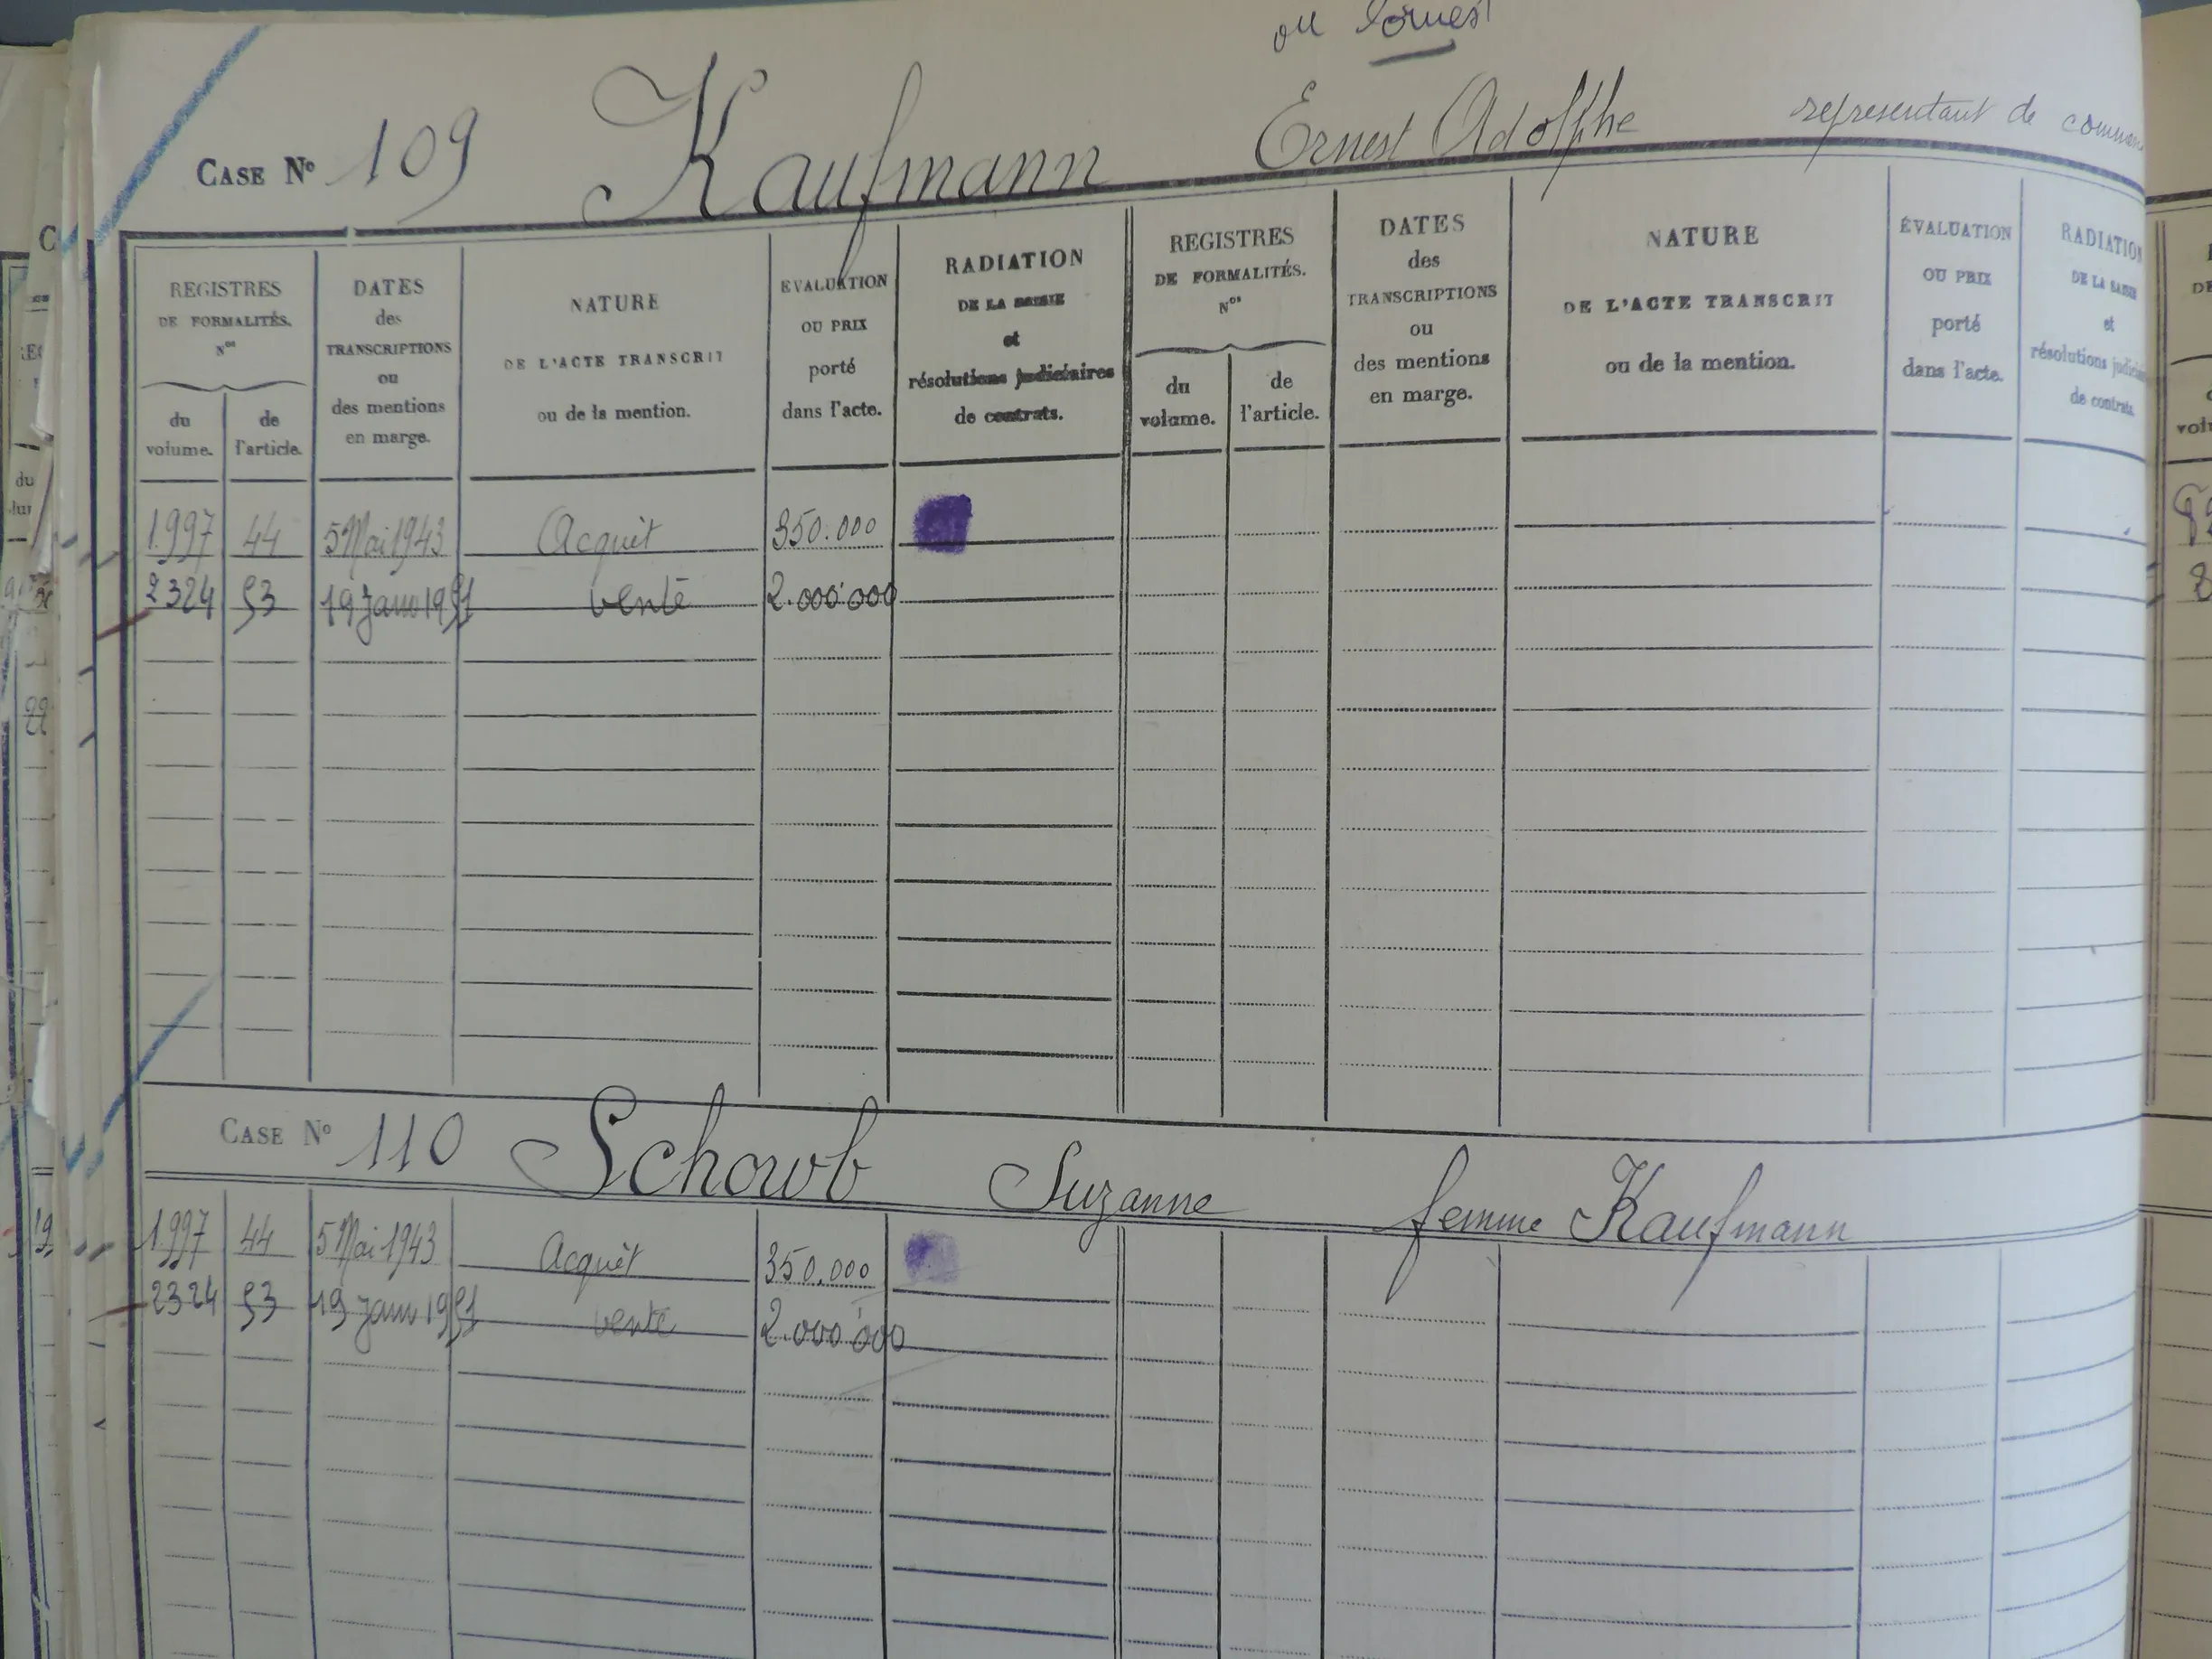 ou Ernest
CASE Nº 109 Kaufmann Ernest Adolphe representant de comm
REGISTRES DE FORMALITÉS. Nos
du volume. de l'article.
DATES des TRANSCRIPTIONS ou des mentions en marge.
NATURE DE L'ACTE TRANSCRIT ou de la mention.
EVALUATION OU PRIX porté dans l'acte.
RADIATION DE LA SAISIE et résolutions judiciaires de contrats.
REGISTRES DE FORMALITÉS. Nos
du volume. de l'article.
DATES des TRANSCRIPTIONS ou des mentions en marge.
NATURE DE L'ACTE TRANSCRIT ou de la mention.
ÉVALUATION OU PRIX porté dans l'acte.
RADIATION DE LA SAISIE et résolutions judici de contrats.
1997 44 5 Mai 1943 Acquêt 350.000
2324 53 19 Janv 1951 vente 2.000.000
CASE Nº 110 Schowb Suzanne femme Kaufmann
1997 44 5 Mai 1943 Acquêt 350.000
2324 53 19 Janv 1951 vente 2.000.000